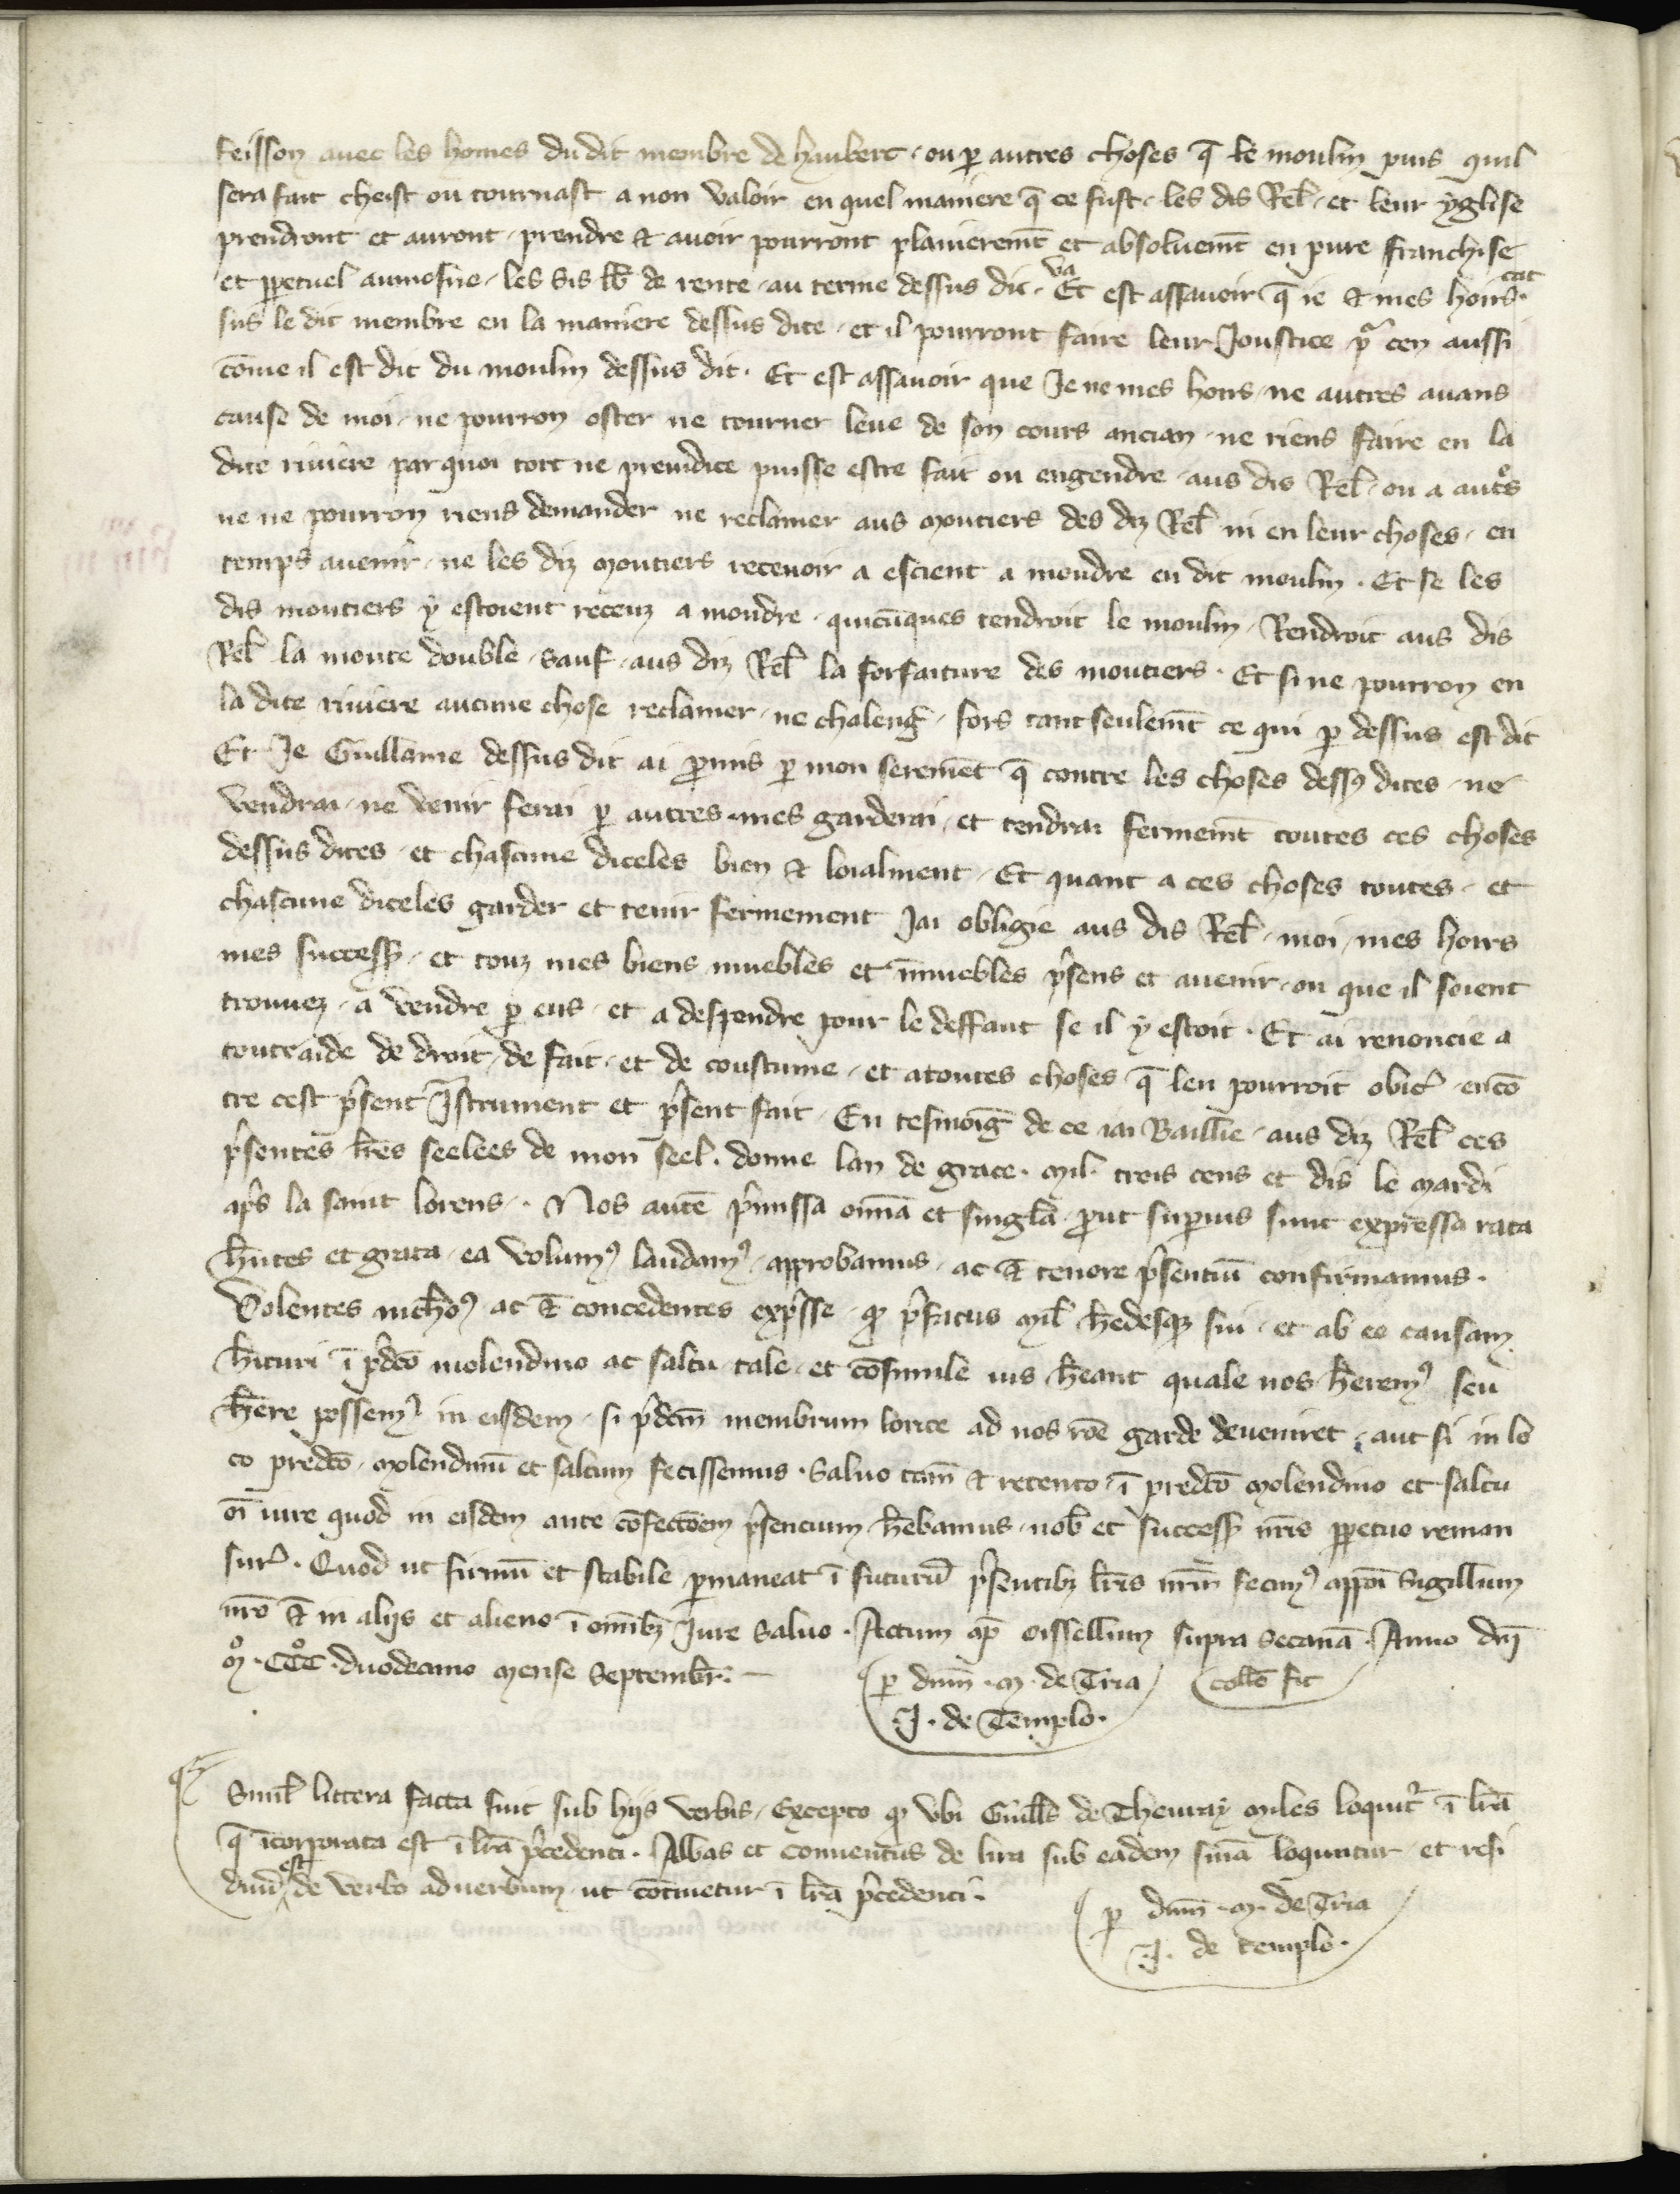 feisson auec les homes dudit membre de haubert · ou ꝑ autres choses q̄ le moulin puis quil
sera fait cheist ou tournast a non valoir en quel maniere q̄ ce fust · les dis Rel̃ · et leur yglise
prendront et auront · prendre ⁊ auoir pourront planierem̄t et absoluem̄t en pure franchise
et ꝑpetuel aumosne · les sis lb̃ de rente · au terme dessus dit · va Et est assauoir q̄ ie ⁊ mes hoirs · cat
sus le dit membre en la maniere dessus dite · et il pourront faire leur Joustice pͬ cen aussi
cōme il est dit du moulin dessus dit · Et est assauoir que Je ne mes hoirs · ne autres aians
cause de moi · ne pourron oster ne tourner leue de son cours ancian · ne riens faire en la
dite riuiere par quoi tort ne preiudice puisse estre fait ou engendre · aus dis Rel̃ · ou a autͤs
ne ne pourron riens demander ne reclamer aus moutiers des diz Rel̃ ni en leur choses · en
temps auenir · ne les diz moutiers receuoir a escient a moudre en dit moulin · Et se les
dis moutiers y estoient receuz a moudre · quicūques tendroit le moulin · Rendroit aus dis
Rel̃ la moute double · sauf · aus diz Rel̃ la forfaiture des moutiers · Et si ne pourron en
la dite riuiere aucune chose reclamer · ne chaleng̃ · fors tant seulem̄t ce qui ꝑ dessus est dit
Et Je Guillaume dessus dit ai ꝓmis ꝑ mon seremēt q̄ contre les choses dessꝰ dites · ne
vendrai · ne venir ferai ꝑ autres · mes garderai · et tendrai fermem̄t toutes ces choses
dessus dites · et chascune diceles bien ⁊ loialment · Et quant a ces choses toutes · et
chascune diceles garder et tenir fermement Jai obligie aus dis Rel̃ · moi · mes hoirs
mes success̃ · et touz mes biens muebles et īmuebles p̃sens et auenir · ou que il soient
trouuez · a vendre ꝑ eus · et a despendre pour le deffaut se il y estoit · Et ai renoncie a
tout aide de droit · de fait · et de coustume · et a toutes choses q̄ len pourroit obic̃ · encō
tre cest p̃sent Īstrument et p̃sent fait · En tesmoig̃ de ce iai Baillie · aus diz Rel̃ ces
p̃sentes lr̃es seelees de mon seel · donne lan de grace · mil · trois cens et dis le mardi
ap̃s la saint lorens · Nos autē p̃missa om̄ia et singl̃a ꝓut suꝑius sunt expressa rata
hñtes et grata · ea volumꝰ laudamꝰ · approbamus · ac ⁊̄ tenore p̃sentiū confirmamus ·
Volentes nichoꝰ ac ⁊̄ concedentes exp̃sse · qͥ p̃fatus mil̃ h̄edesqꝫ sui · et ab eo causam
h̄ituri ī p̃dc̄o molendino ac saltu tale · et cōsimile ius h̄eant quale nos h̄eremꝰ seu
h̄ere possemꝰ in eisdem · si p̃dcm̄ membrum lorice ad nos rōe garde deueniret · aut si in lo
co predc̄o · molendinū et saltum fecissemus · Saluo tam̄ ⁊ retento · ī predc̄o molendino et saltu
om̄i iure quod in eisdem ante cōfectōem p̃sencium h̄ebamus · nob̃ et success̃ nr̄is ꝑpetuo reman
sur̃ · Quod ut firmū et stabile ꝑmaneat ī futurū p̃sentibꝫ lr̃is nr̄m fecimꝰ appōi Sigillum
nr̄o ⁊̄ in alijs et alieno ī om̄ibꝫ Jure saluo · Actum ap̃ oissellum supra secanā · Anno dn̄i
mͦ · CCCͦ · duodecimo mense Septembr̃ · —
ꝑ dn̄m · m · de Tria
collō fit
·J· de Templo ·
Simil̃ littera facta fuit sub hijs verbis · Excepto qͥ vbi Guill̃s de Theuray miles loquitͬ ī lr̃a
q̄ īcorporata est ī lr̃a p̃cedenti · Abbas et conuentus de lira sub eadem forma loquntur · et resi
duū est de verbo ad uerbum · ut cōtinetur ī lr̃a p̃cedenti ·
ꝑ dn̄m · m · de Tria
·J· de templo ·